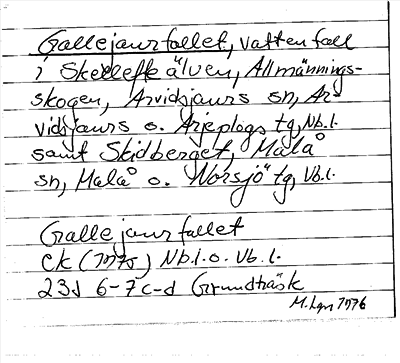 Gallejaurfallet, vattenfall
i Skellefte älven, Allmännings-
skogen, Arvidsjaurs sn, Ar-
vidsjaurs o. Arjeplogs tg, Nb.l.
samt Skidberget, Malå
sn, Malå o. Norsjö tg, Vb.l.
Gallejaurfallet
ek (1975) Nb.l. o. Vb.l.
23J 6-7c-d Grundträsk
1976